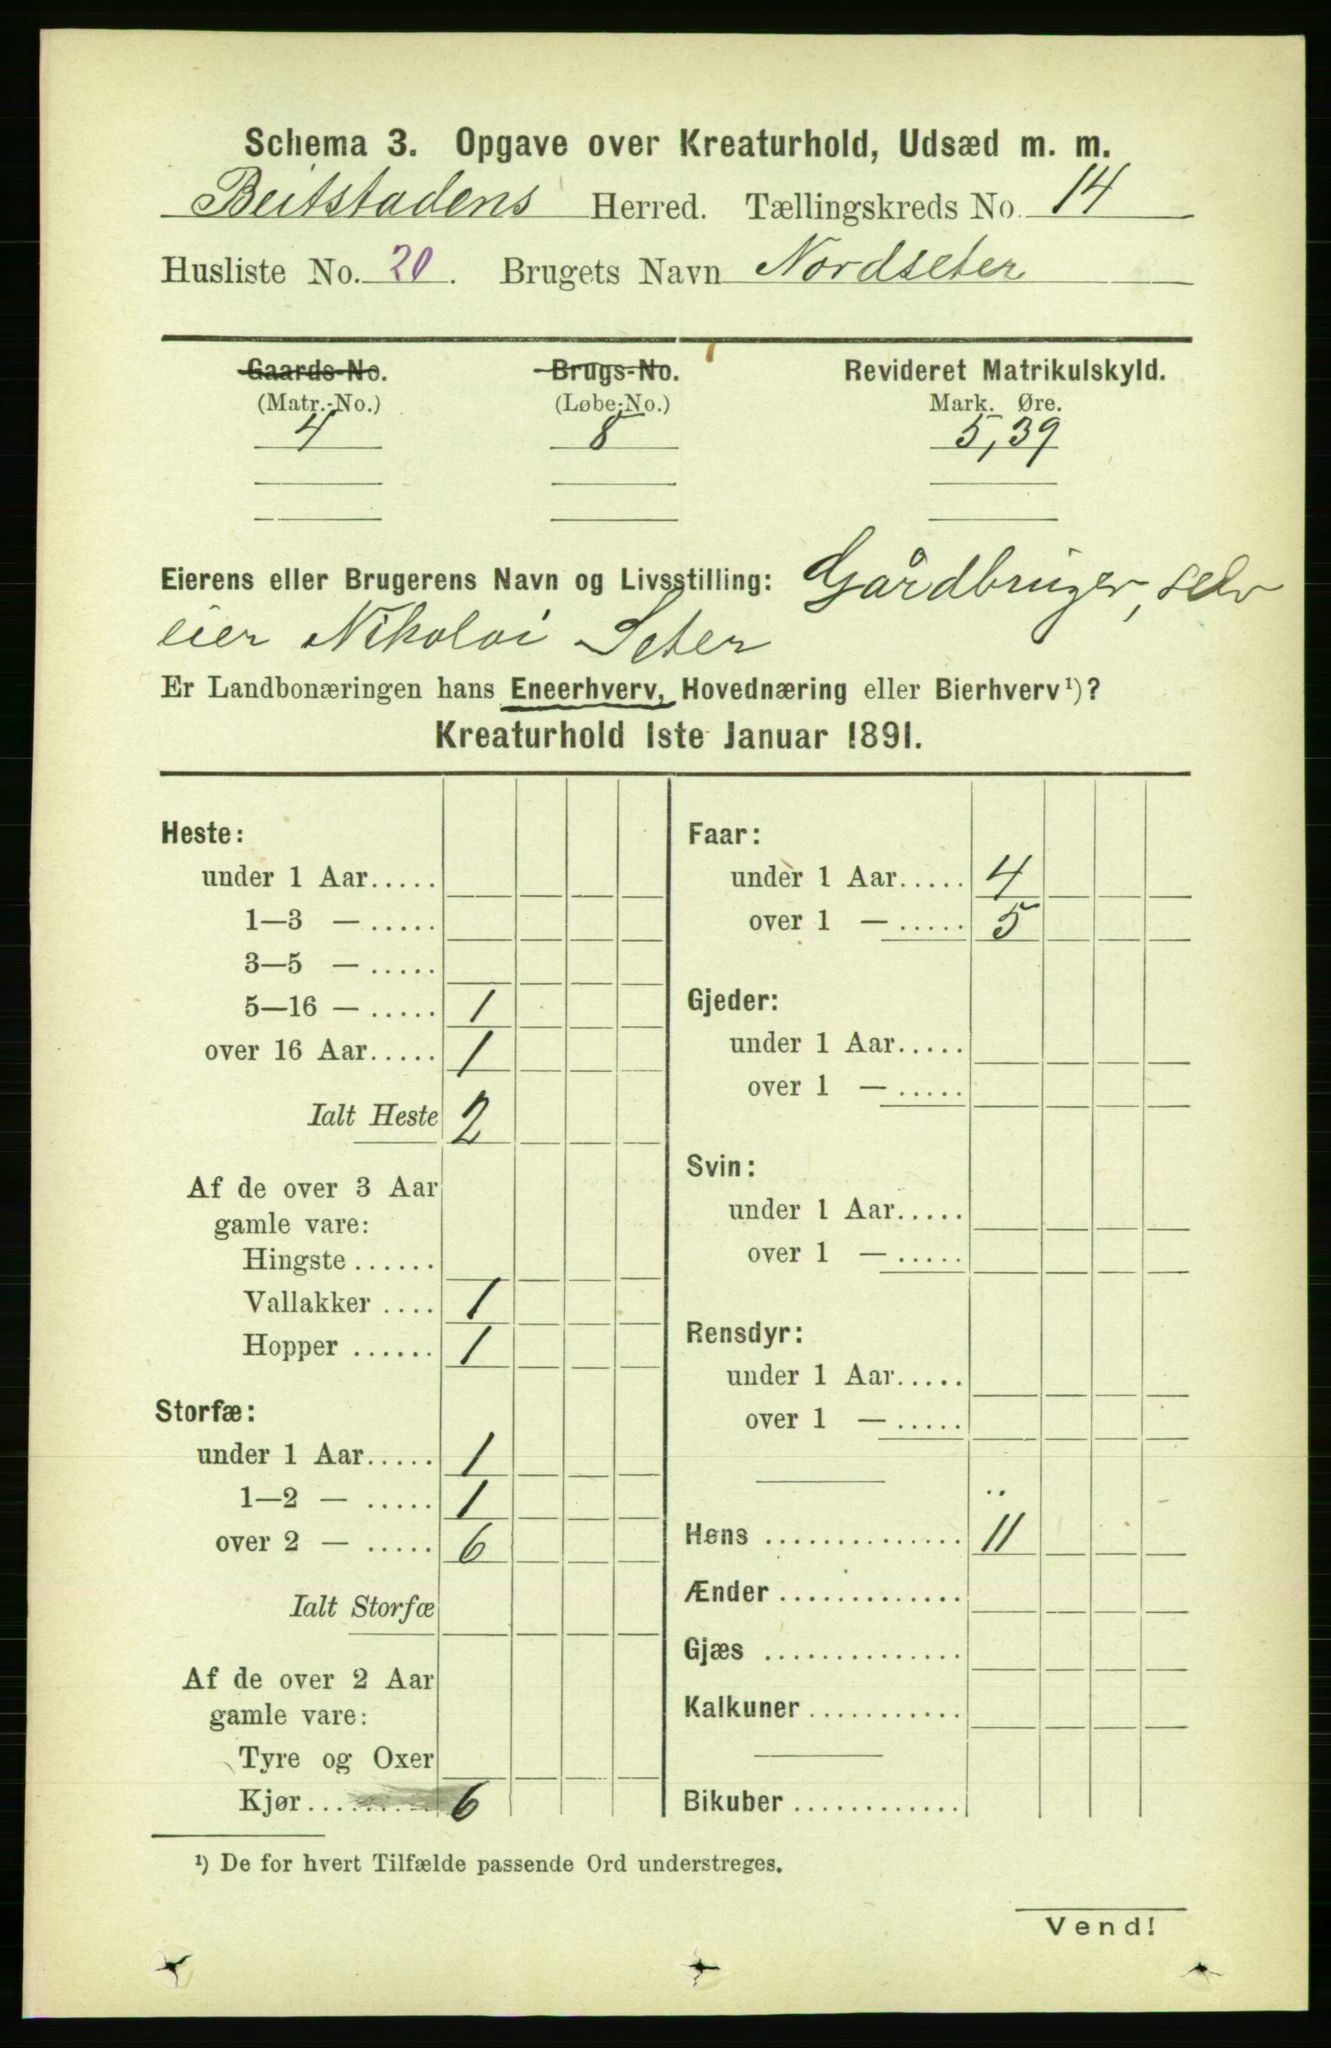 Schema 3. Opgave over Kreaturhold, Udsæd m. m.
Beitstadens Herred. Tællingskreds No. 14
Husliste No. 20. Brugets Navn Nordseter
Gaards-No. Brugs-No. Revideret Matrikulskyld.
(Matr.-No.) (Løbe-No.) Mark. Øre.
4 8 5,39
Eierens eller Brugerens Navn og Livsstilling: Gårdbruger, selv
eier Nikolai Seter
Er Landbonæringen hans Eneerhverv, Hovednæring eller Bierhverv¹)?
Kreaturhold 1ste Januar 1891.
Heste:
under 1 Aar.....
1—3 — .....
3—5 — .....
5—16 — ..... 1
over 16 Aar..... 1
Ialt Heste 2
Af de over 3 Aar
gamle vare:
Hingste ......
Vallakker .... 1
Hopper ...... 1
Storfæ:
under 1 Aar..... 1
1—2 — ..... 1
over 2 — ..... 6
Ialt Storfæ
Af de over 2 Aar
gamle vare:
Tyre og Oxer
Kjør.......... 6
Faar:
under 1 Aar..... 4
over 1 — ..... 5
Gjeder:
under 1 Aar.....
over 1 — .....
Svin:
under 1 Aar.....
over 1 — .....
Rensdyr:
under 1 Aar.....
over 1 — .....
Høns .............. 11
Ænder .............
Gjæs ..............
Kalkuner ...........
Bikuber ............
¹) De for hvert Tilfælde passende Ord understreges.
Vend!